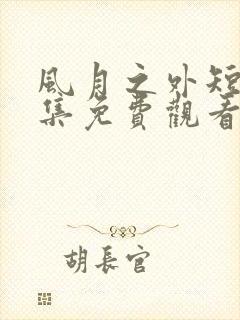 風月之外短
集免費觀看
胡長官